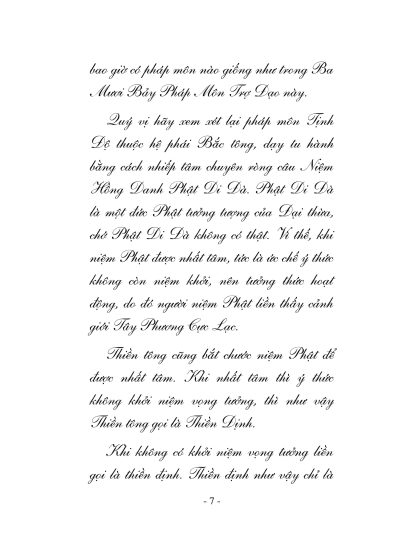 bao giờ có pháp môn nào giống như trong Ba
Mươi Bảy Pháp Môn Trợ Đạo này.
Quý vị hãy xem xét lại pháp môn Tịnh
Độ thuộc hệ phái Bắc tông, dạy tu hành
bằng cách nhiếp tâm chuyên ròng câu Niệm
Hồng Danh Phật Di Đà. Phật Di Đà
là một đức Phật tưởng tượng của Đại thừa,
chớ Phật Di Đà không có thật. Vì thế, khi
niệm Phật được nhất tâm, tức là ức chế ý thức
không còn niệm khởi, nên tưởng thức hoạt
động, do đó người niệm Phật liền thấy cảnh
giới Tây Phương Cực Lạc.
Thiền tông cũng bắt chước niệm Phật để
được nhất tâm. Khi nhất tâm thì ý thức
không khởi niệm vọng tưởng, thì như vậy
Thiền tông gọi là Thiền Định.
Khi không có khởi niệm vọng tưởng liền
gọi là thiền định. Thiền định như vậy chỉ là
- 7 -